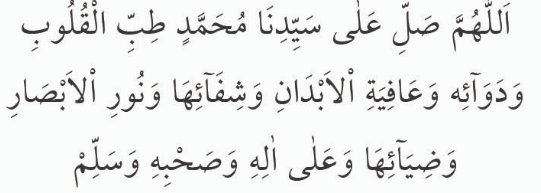 اَللّٰهُمَّ صَلِّ عَلٰى سَيِّدِنَا مُحَمَّدٍ طِبِّ الْقُلُوبِ
وَدَوَآئِه وَعَافِيَةِ اْلاَبْدَانِ وَشِفَآئِهَا وَنُورِ اْلاَبْصَارِ
وَضِيَآئِهَا وَعَلٰى اٰلِهِ وَصَحْبِهِ وَسَلِّمْ